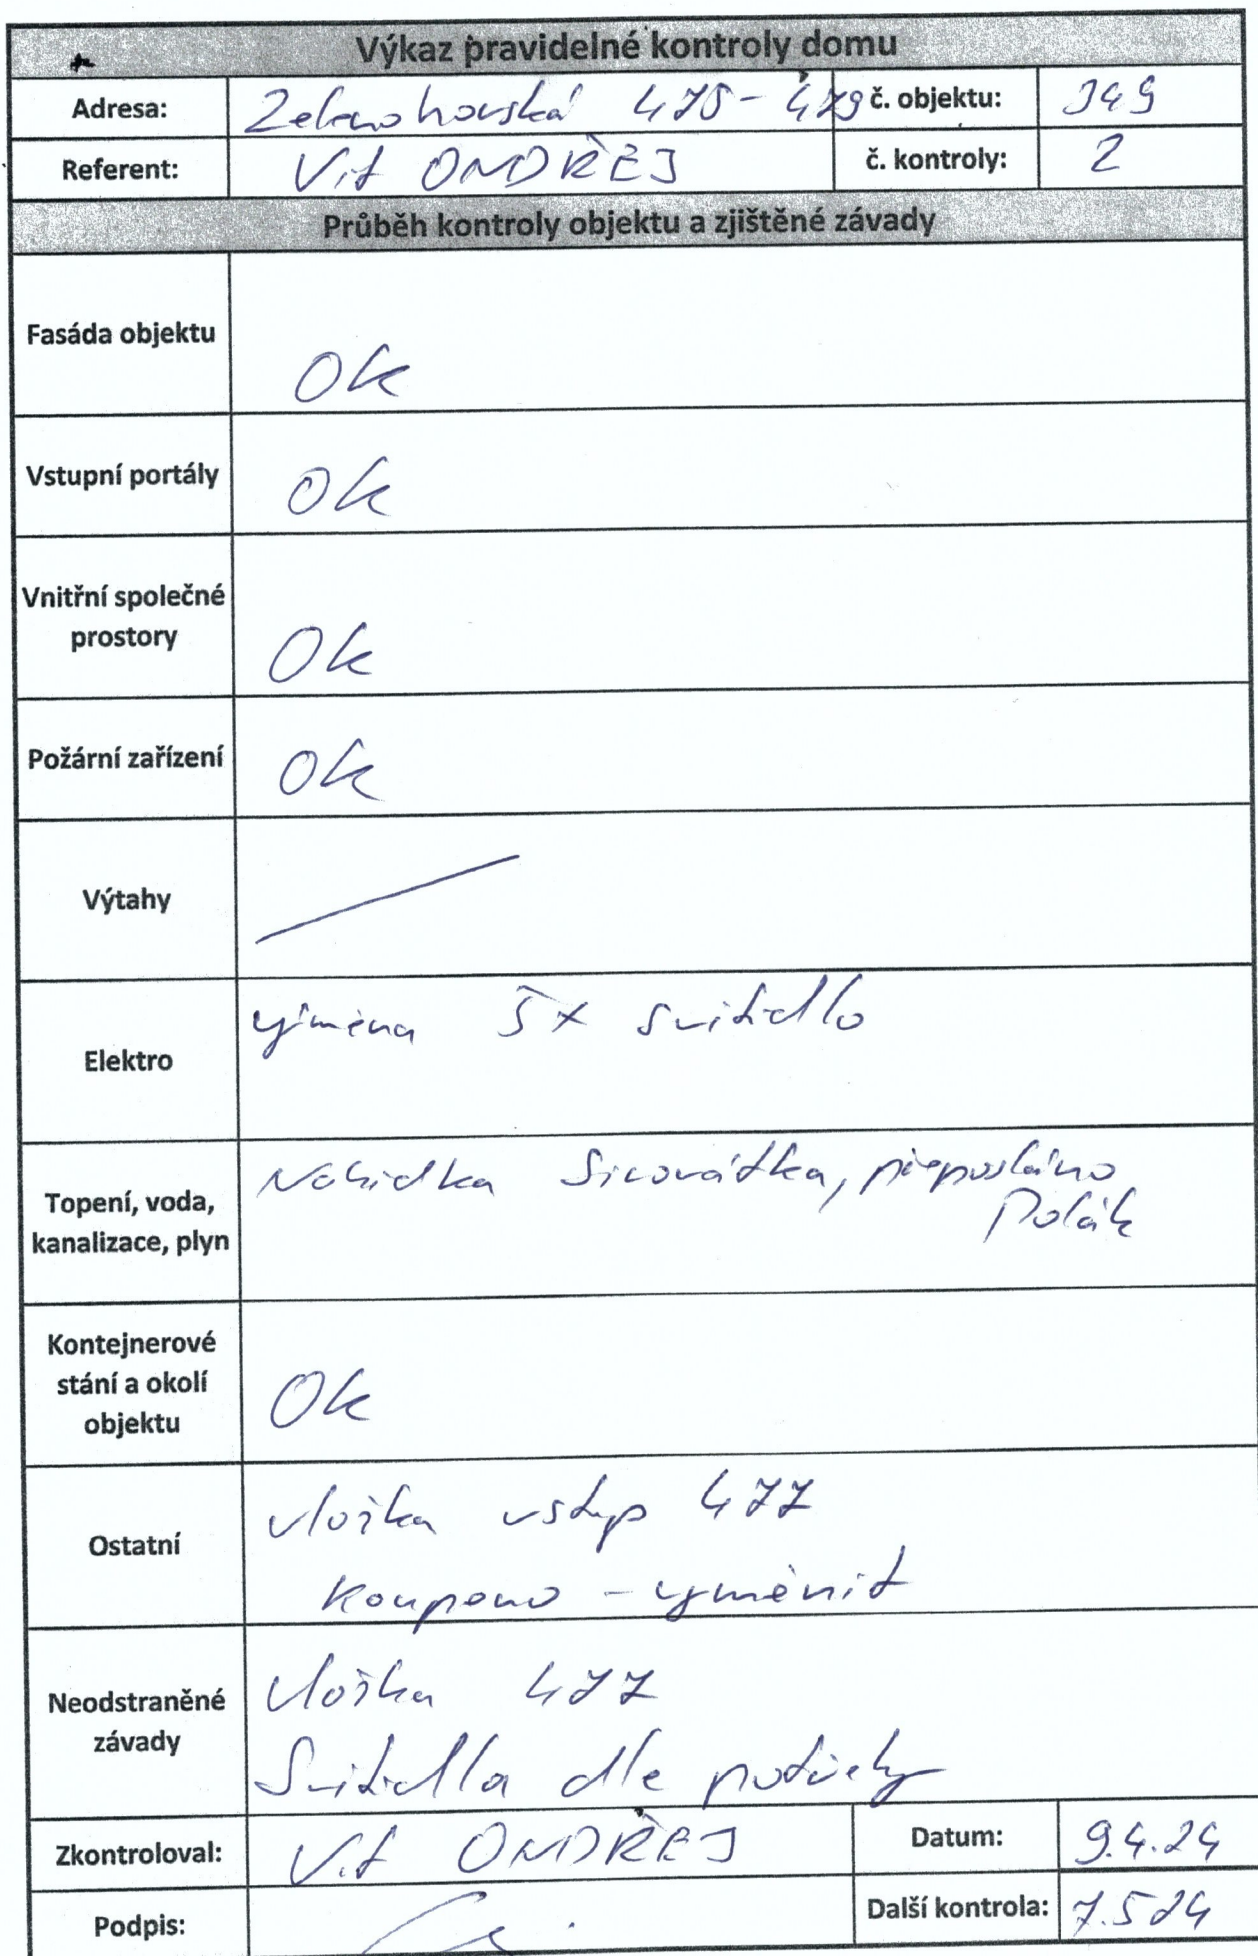 Výkaz pravidelné kontroly domu
Adresa: Zelenohorská 475-479 č. objektu: 349
Referent: Vít ONDŘEJ č. kontroly: 2
Průběh kontroly objektu a zjištěné závady
Fasáda objektu Ok
Vstupní portály Ok
Vnitřní společné
prostory Ok
Požární zařízení Ok
Výtahy
Elektro výměna 5x svítidlo
Topení, voda,
kanalizace, plyn Nabídka Sirovátka, přeposláno
Polák
Kontejnerové
stání a okolí
objektu Ok
Ostatní vložka vstup 477
koupeno - vyměnit
Neodstraněné
závady vložka 477
Svítidla dle potřeby
Zkontroloval: Vít ONDŘEJ Datum: 9.4.24
Podpis: Další kontrola: 7.5 24